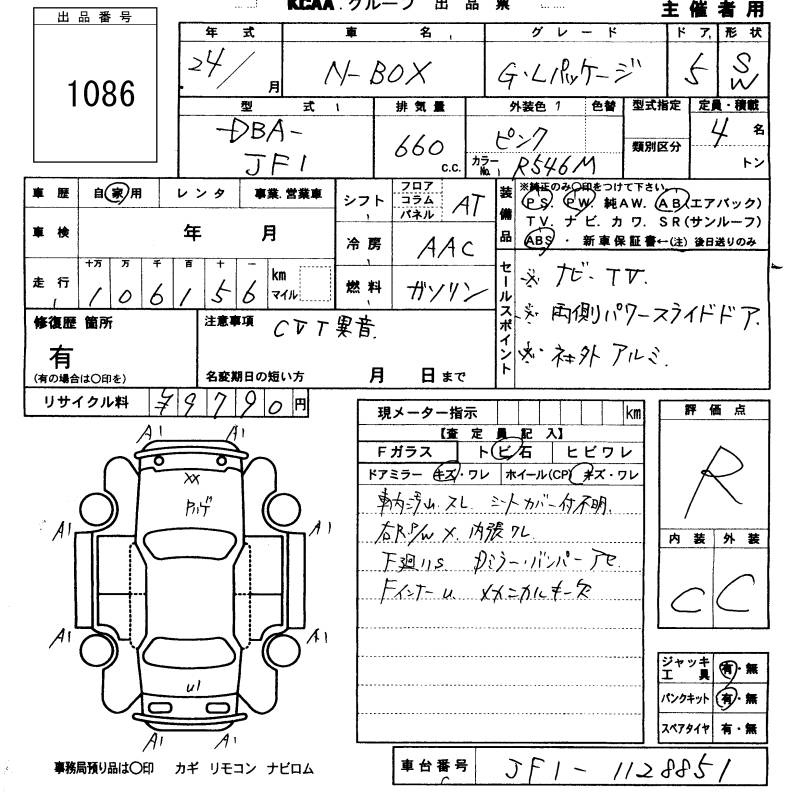 KCAA.グループ 出品票
主催者用
出品番号
1086
年式 車名 グレード ドア 形状
24/ 月 N-BOX G・Lパッケージ 5 SW
型式 排気量 外装色 色替 型式指定 定員・積載
類別区分
DBA-JF1 660 c.c. ピンク 4 名
カラーNo. R546M トン
車歴 自家用 レンタ 事業.営業車
シフト フロア コラム パネル AT
装備品 ※純正のみ○印をつけて下さい。
PS. PW. 純AW. AB(エアバック)
TV. ナビ. カワ. SR(サンルーフ)
ABS ・ 新車保証書←(注) 後日送りのみ
車検 年 月
冷房 AAC
走行 十万 万 千 百 十 一 km マイル
106156
燃料 ガソリン
セールスポイント
※ ナビ-TV.
※ 両側パワースライドドア.
※ 社外アルミ.
修復歴 箇所
有
(有の場合は○印を)
注意事項 CVT異音
名変期日の短い方 月 日まで
リサイクル料 ¥9790円
現メーター指示 km
【査定員記入】
Fガラス トビ石 ヒビワレ
ドアミラー キズ・ワレ ホイール(CP) キズ・ワレ
車内汚れ.スレ シートカバー付不明.
右R P/W X. 内張ワレ
下廻りS Dミラー・バンパーアセ
FインナーU メカニカルキー欠
評価点
R
内装 外装
C C
A1 A1
XX
Pハゲ
A1 A1
A1 A1
U1
A1 A1
ジャッキ工具 有・無
パンクキット 有・無
スペアタイヤ 有・無
事務局預り品は○印 カギ リモコン ナビロム
車台番号 JF1-1128851